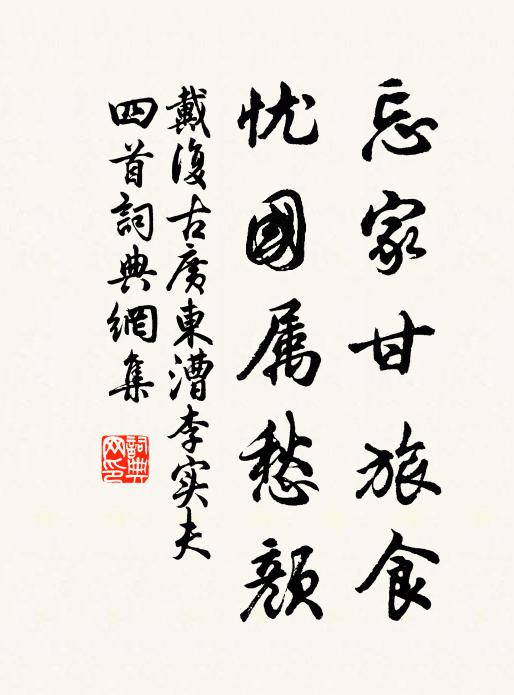 忘家甘旅食
忧國属愁顔
戴復古廣東漕李实夫
四首詞典網集
詞典网印